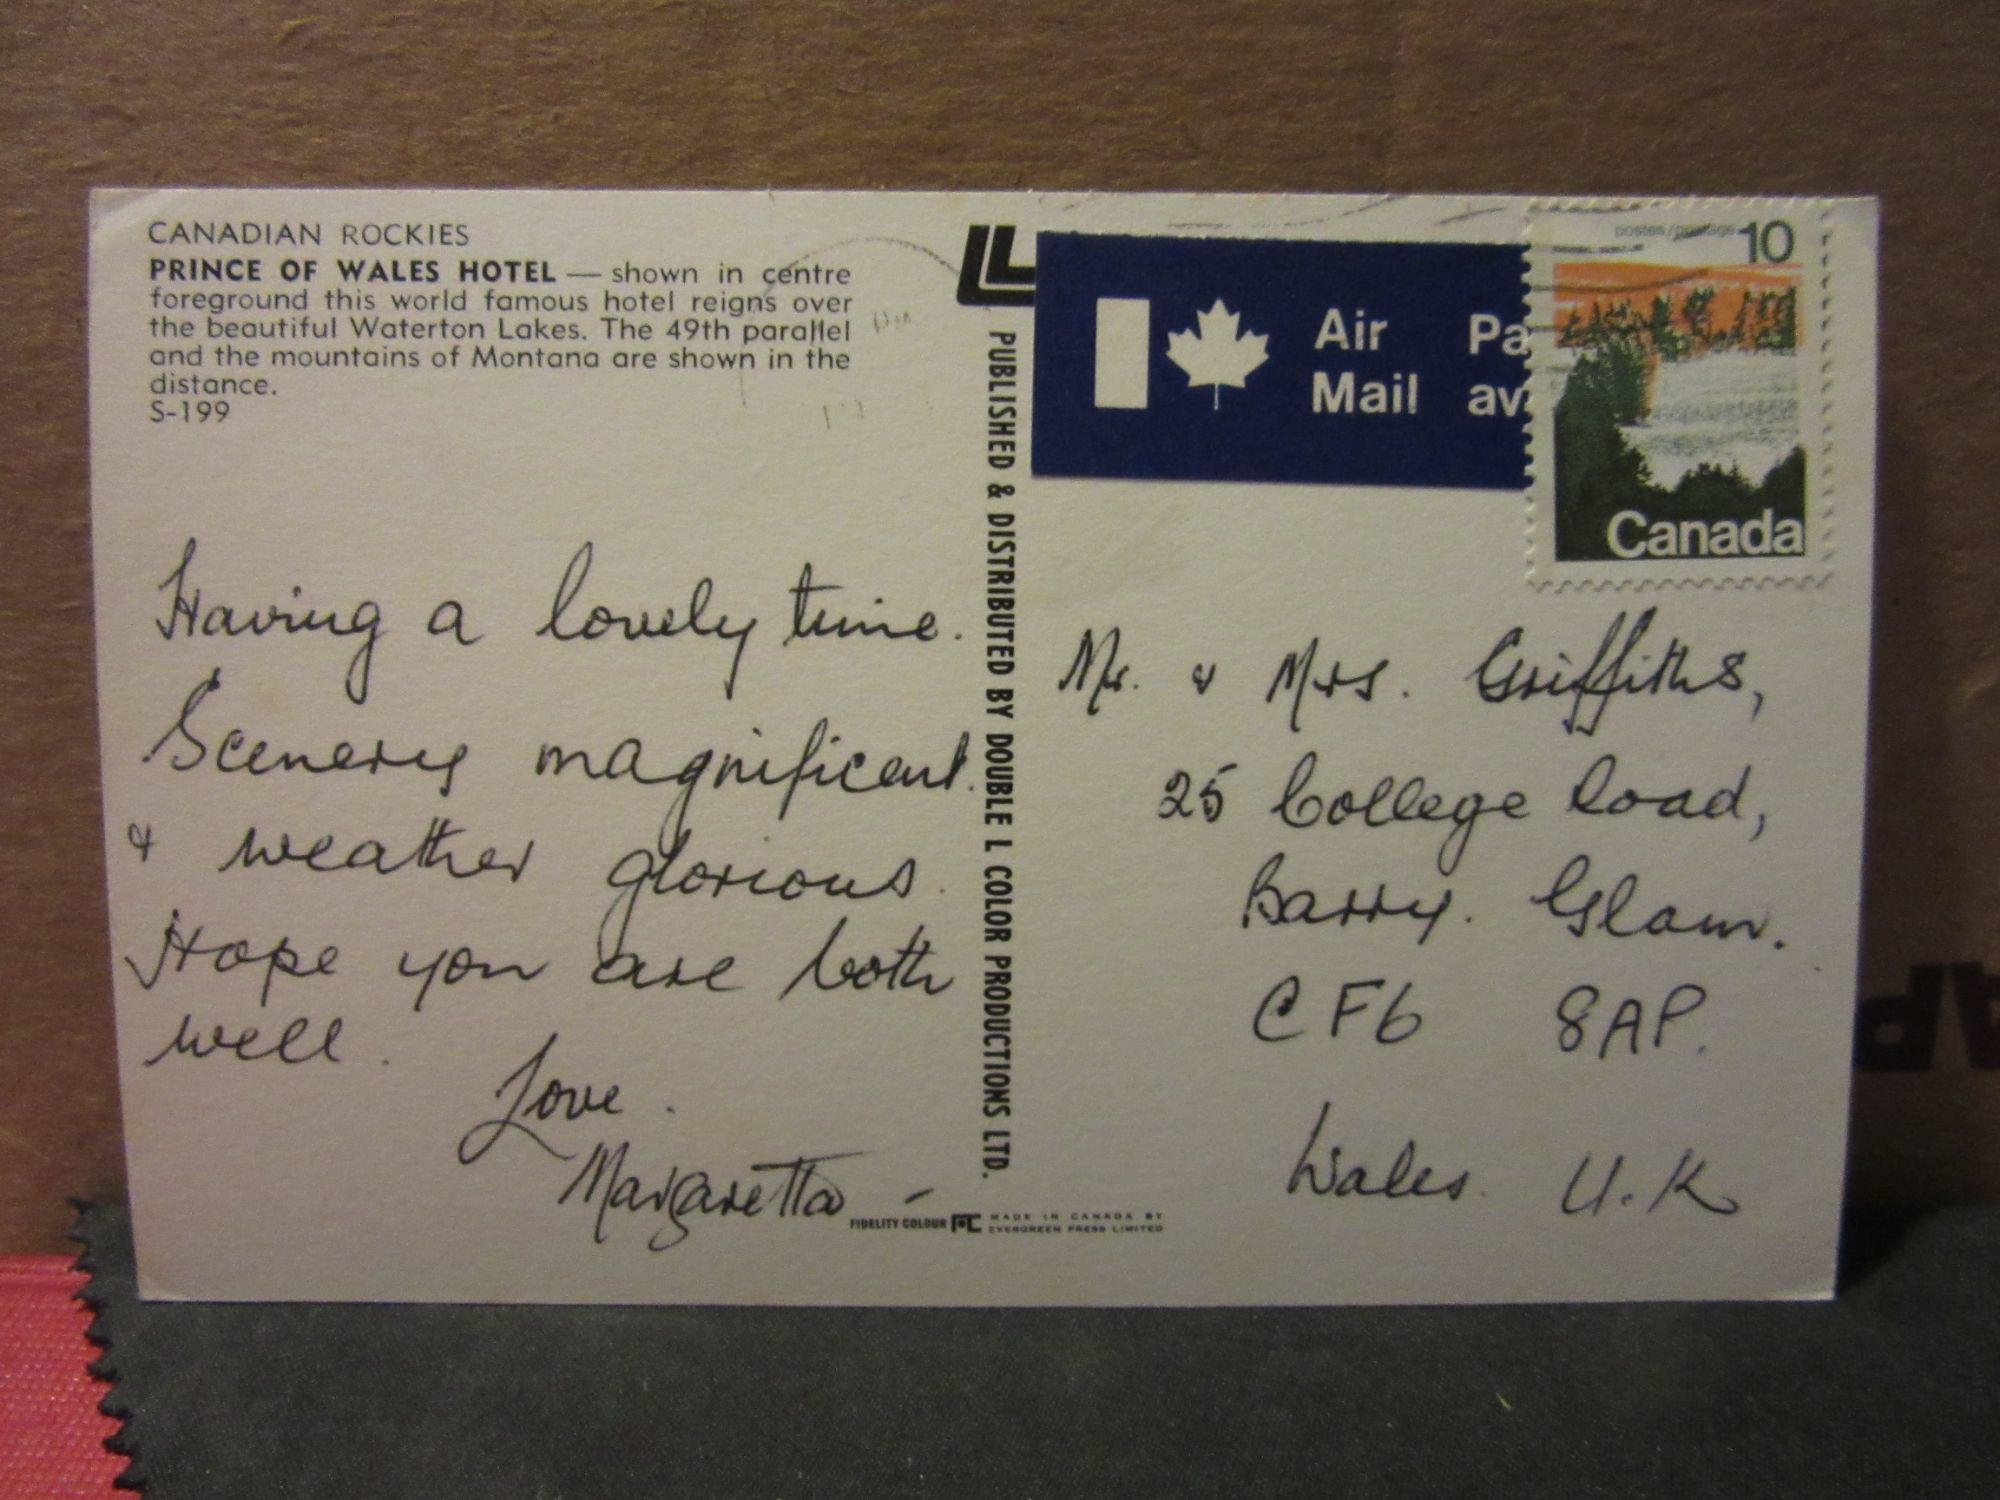 CANADIAN ROCKIES
PRINCE OF WALES HOTEL — shown in centre
foreground this world famous hotel reigns over
the beautiful Waterton Lakes. The 49th parallel
and the mountains of Montana are shown in the
distance.
S-199
Having a lovely time.
Scenery magnificent.
& weather glorious.
Hope you are both
well.
Love.
Margaretta -
PUBLISHED & DISTRIBUTED BY DOUBLE L COLOR PRODUCTIONS LTD.
FIDELITY COLOUR
MADE IN CANADA BY
EVERGREEN PRESS LIMITED
Air Pa
Mail av
postes/postage 10
Canada
Mr. & Mrs. Griffiths,
25 College Road,
Barry. Glam.
CF6 8AP.
Wales. U.K